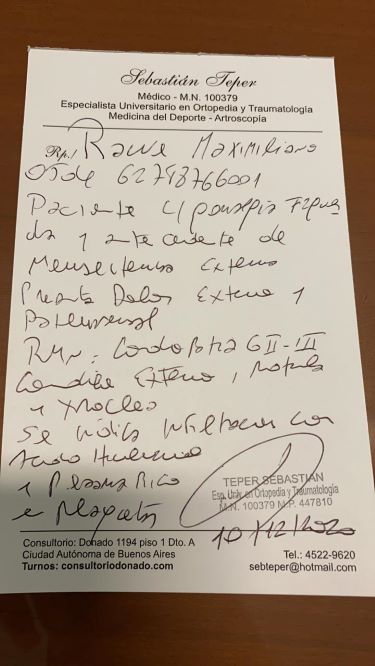 Sebastián Teper
Médico - M.N. 100379
Especialista Universitario en Ortopedia y Traumatología
Medicina del Deporte - Artroscopía
Rp./ Maximiliano
OSDE 62748766001
Paciente c/
1 antecedente de
Meniscectomia Externa
Presenta Dolor Externo 1
Patelofemoral
RMN: Condropatia G II-III
Condilo Externo, Rotula
y Troclea
Se indica infiltracion con
Acido Hialuronico
y Plasma Rico
e Plaquetas
TEPER SEBASTIAN
Esp. Univ. en Ortopedia y Traumatología
M.N. 100379 M.P. 447810
10/12/2020
Consultorio: Donado 1194 piso 1 Dto. A
Ciudad Autónoma de Buenos Aires
Turnos: consultoriodonado.com
Tel.: 4522-9620
sebteper@hotmail.com